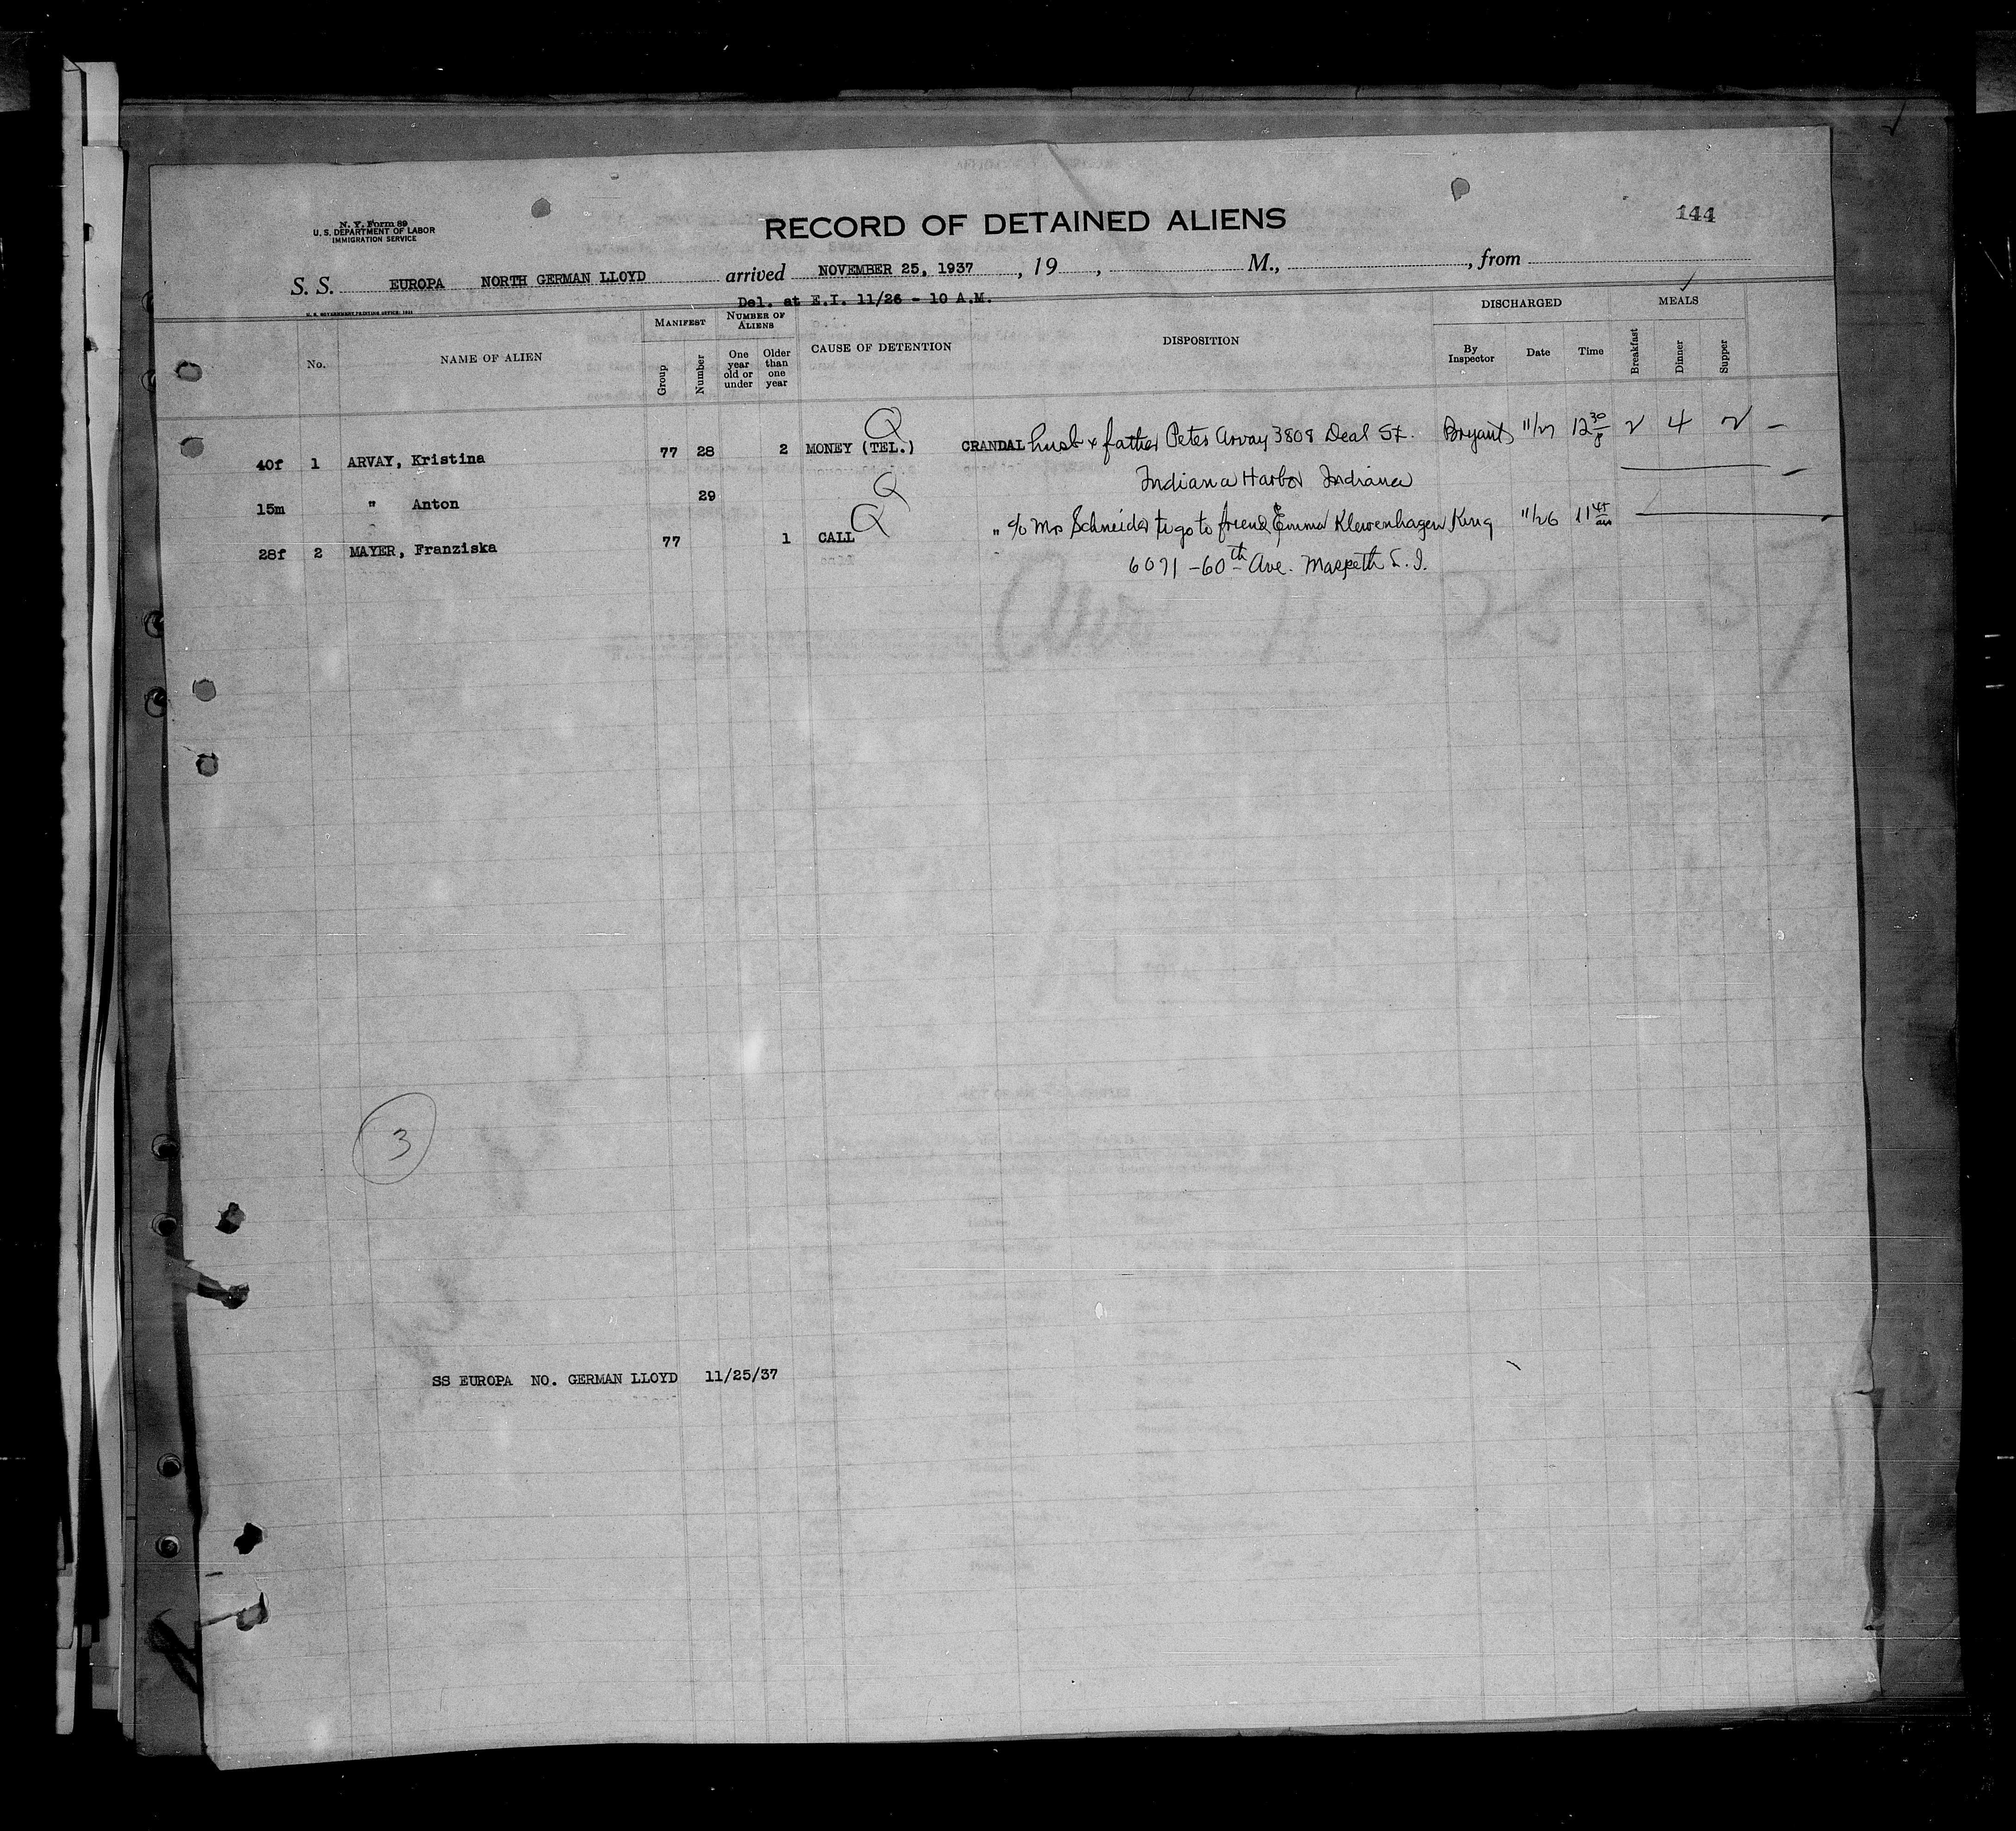 N. Y. Form 89
U. S. DEPARTMENT OF LABOR
IMMIGRATION SERVICE
RECORD OF DETAINED ALIENS
144
S. S. EUROPA NORTH GERMAN LLOYD arrived NOVEMBER 25, 1937, 19, M., , from
Del. at E.I. 11/26 - 10 A.M.
No. NAME OF ALIEN MANIFEST Group Number NUMBER OF ALIENS One year old or under Older than one year CAUSE OF DETENTION DISPOSITION DISCHARGED By Inspector Date Time MEALS Breakfast Dinner Supper
Q
40f 1 ARVAY, Kristina 77 28 2 MONEY (TEL.) CRANDAL husb & father Peter Arvay 3808 Deal St. Bryant 11/27 12 30/p 2 4 2 -
Q Indiana Harbor Indiana
15m " Anton 29
Q
28f 2 MAYER, Franziska 77 1 CALL " c/o Mr Schneider to go to friend Emma Klewenhagen King 11/26 11 45/am
6071 - 60th Ave. Maspeth L. I.
3
SS EUROPA NO. GERMAN LLOYD 11/25/37